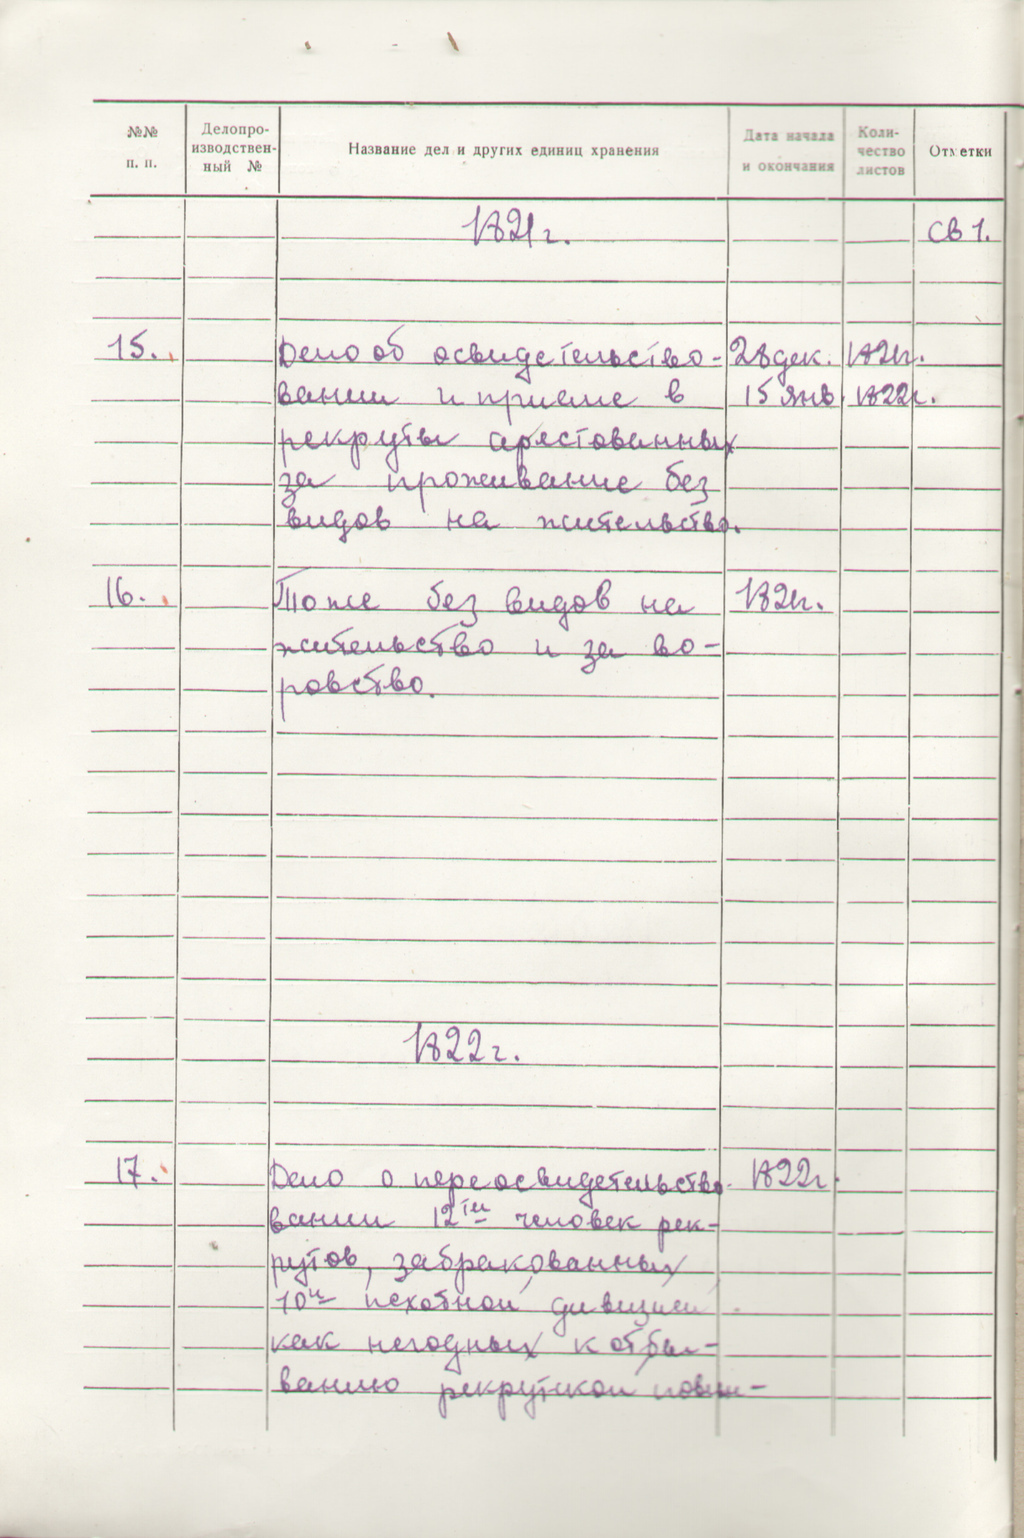 №№ п. п.
Делопро-
изводствен-
ный №
Название дел и других единиц хранения
Дата начала
и окончания
Коли-
чество
листов
Отметки
1821 г.
св 1.
15.
Дело об освидетельство-
28 дек. 1821г.
вании и приеме в
15 янв. 1822г.
рекруты арестованных
за проживание без
видов на жительство.
16.
То же без видов на
1821г.
жительство и за во-
ровство.
1822 г.
17.
Дело о переосвидетельство-
1822г.
вании 12ти человек рек-
рутов, забракованных
10й пехотной дивизией
как негодных к отбы-
ванию рекрутской повин-